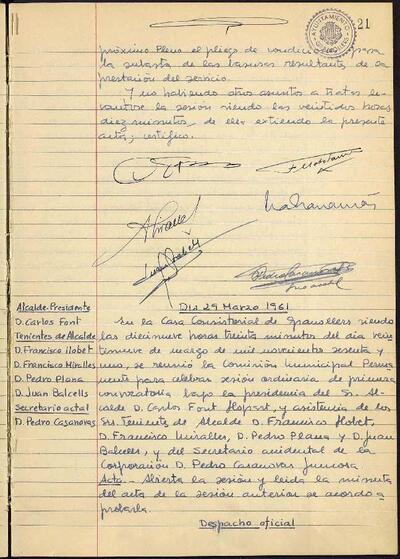 21
AYUNTAMIENTO
GRANOLLERS
próximo Pleno el pliego de condiciones para
la subasta de las basuras resultante de la
prestación del servicio.
Y no habiendo otros asuntos a tratar le-
vantose la sesión siendo las veintidos horas
diez minutos, de ella extiendo la presente
acta; certifico.
Alcalde-Presidente
D. Carlos Font
Tenientes de Alcalde
D. Francisco Llobet
D. Francisco Miralles
D. Pedro Plana
D. Juan Balcells
Secretario actal
D. Pedro Casanovas
Dia 29 Marzo 1961
En la Casa Consistorial de Granollers siendo
las diecinueve horas treinta minutos del dia vein
tinueve de marzo de mil novecientos sesenta y
uno, se reunió la Comisión Municipal Perma
nente para celebrar sesión ordinaria de primera
convocatoria bajo la presidencia del Sr. Al-
calde D. Carlos Font Llopart, y asistencia de los
Srs. Teniente de Alcalde D. Francisco Llobet,
D. Francisco Miralles, D. Pedro Plana y D. Juan
Balcells, y del Secretario accidental de la
Corporación D. Pedro Casanovas
Acta.- Abierta la sesión y leida la minuta
del acta de la sesión anterior se acordo a-
probarla.
Despacho oficial